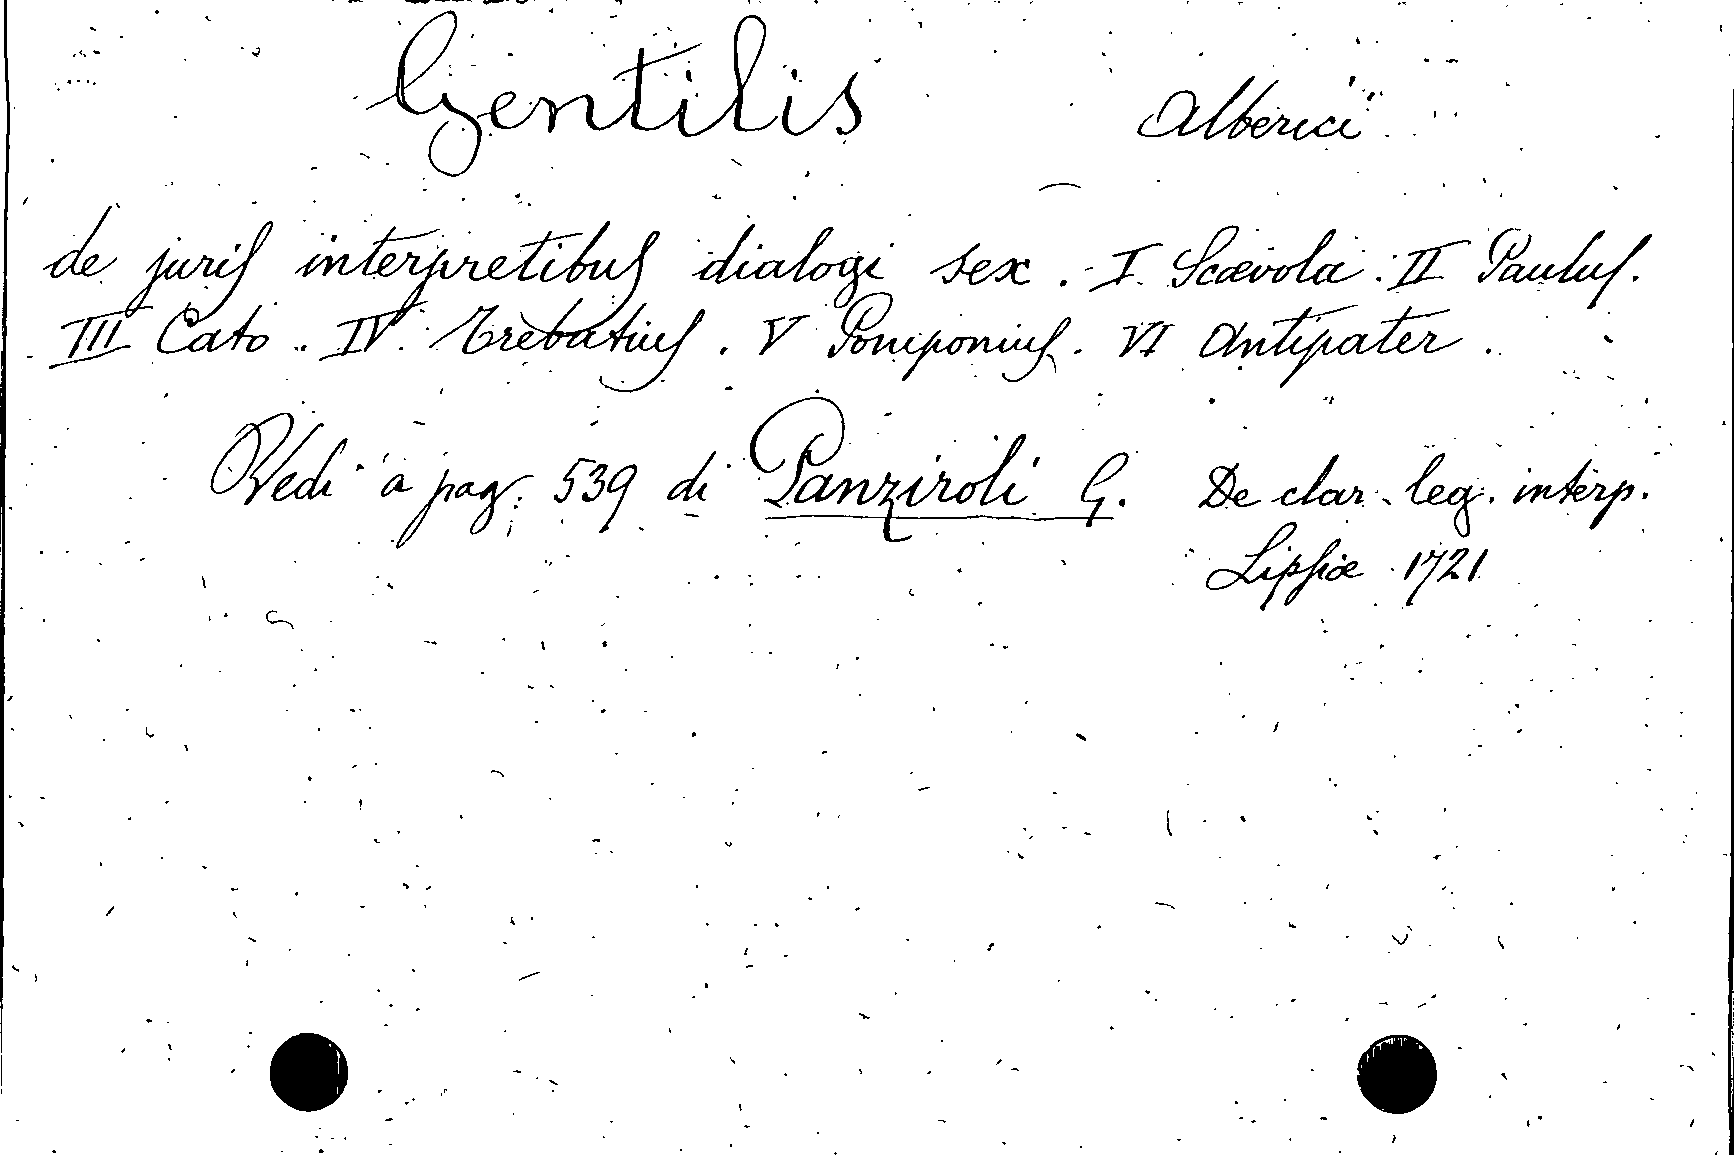 Gentilis Alberici
de juris interpretibus dialogi sex. I. Scævola. II Paulus.
III Cato. IV. Trebatius. V Pomponius. VI Antipater.
Vedi a pag. 539 di Panziroli G. De clar. leg. interp.
Lipsiæ 1721